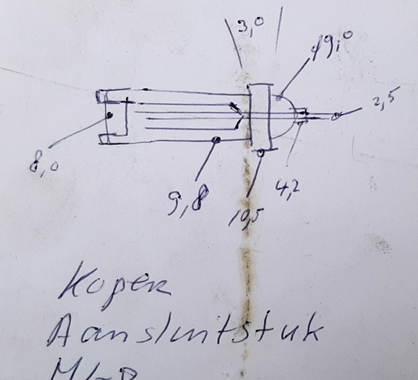 3,0
19,0
2,5
8,0
9,8
10,5
4,2
Koper
Aansluitstuk